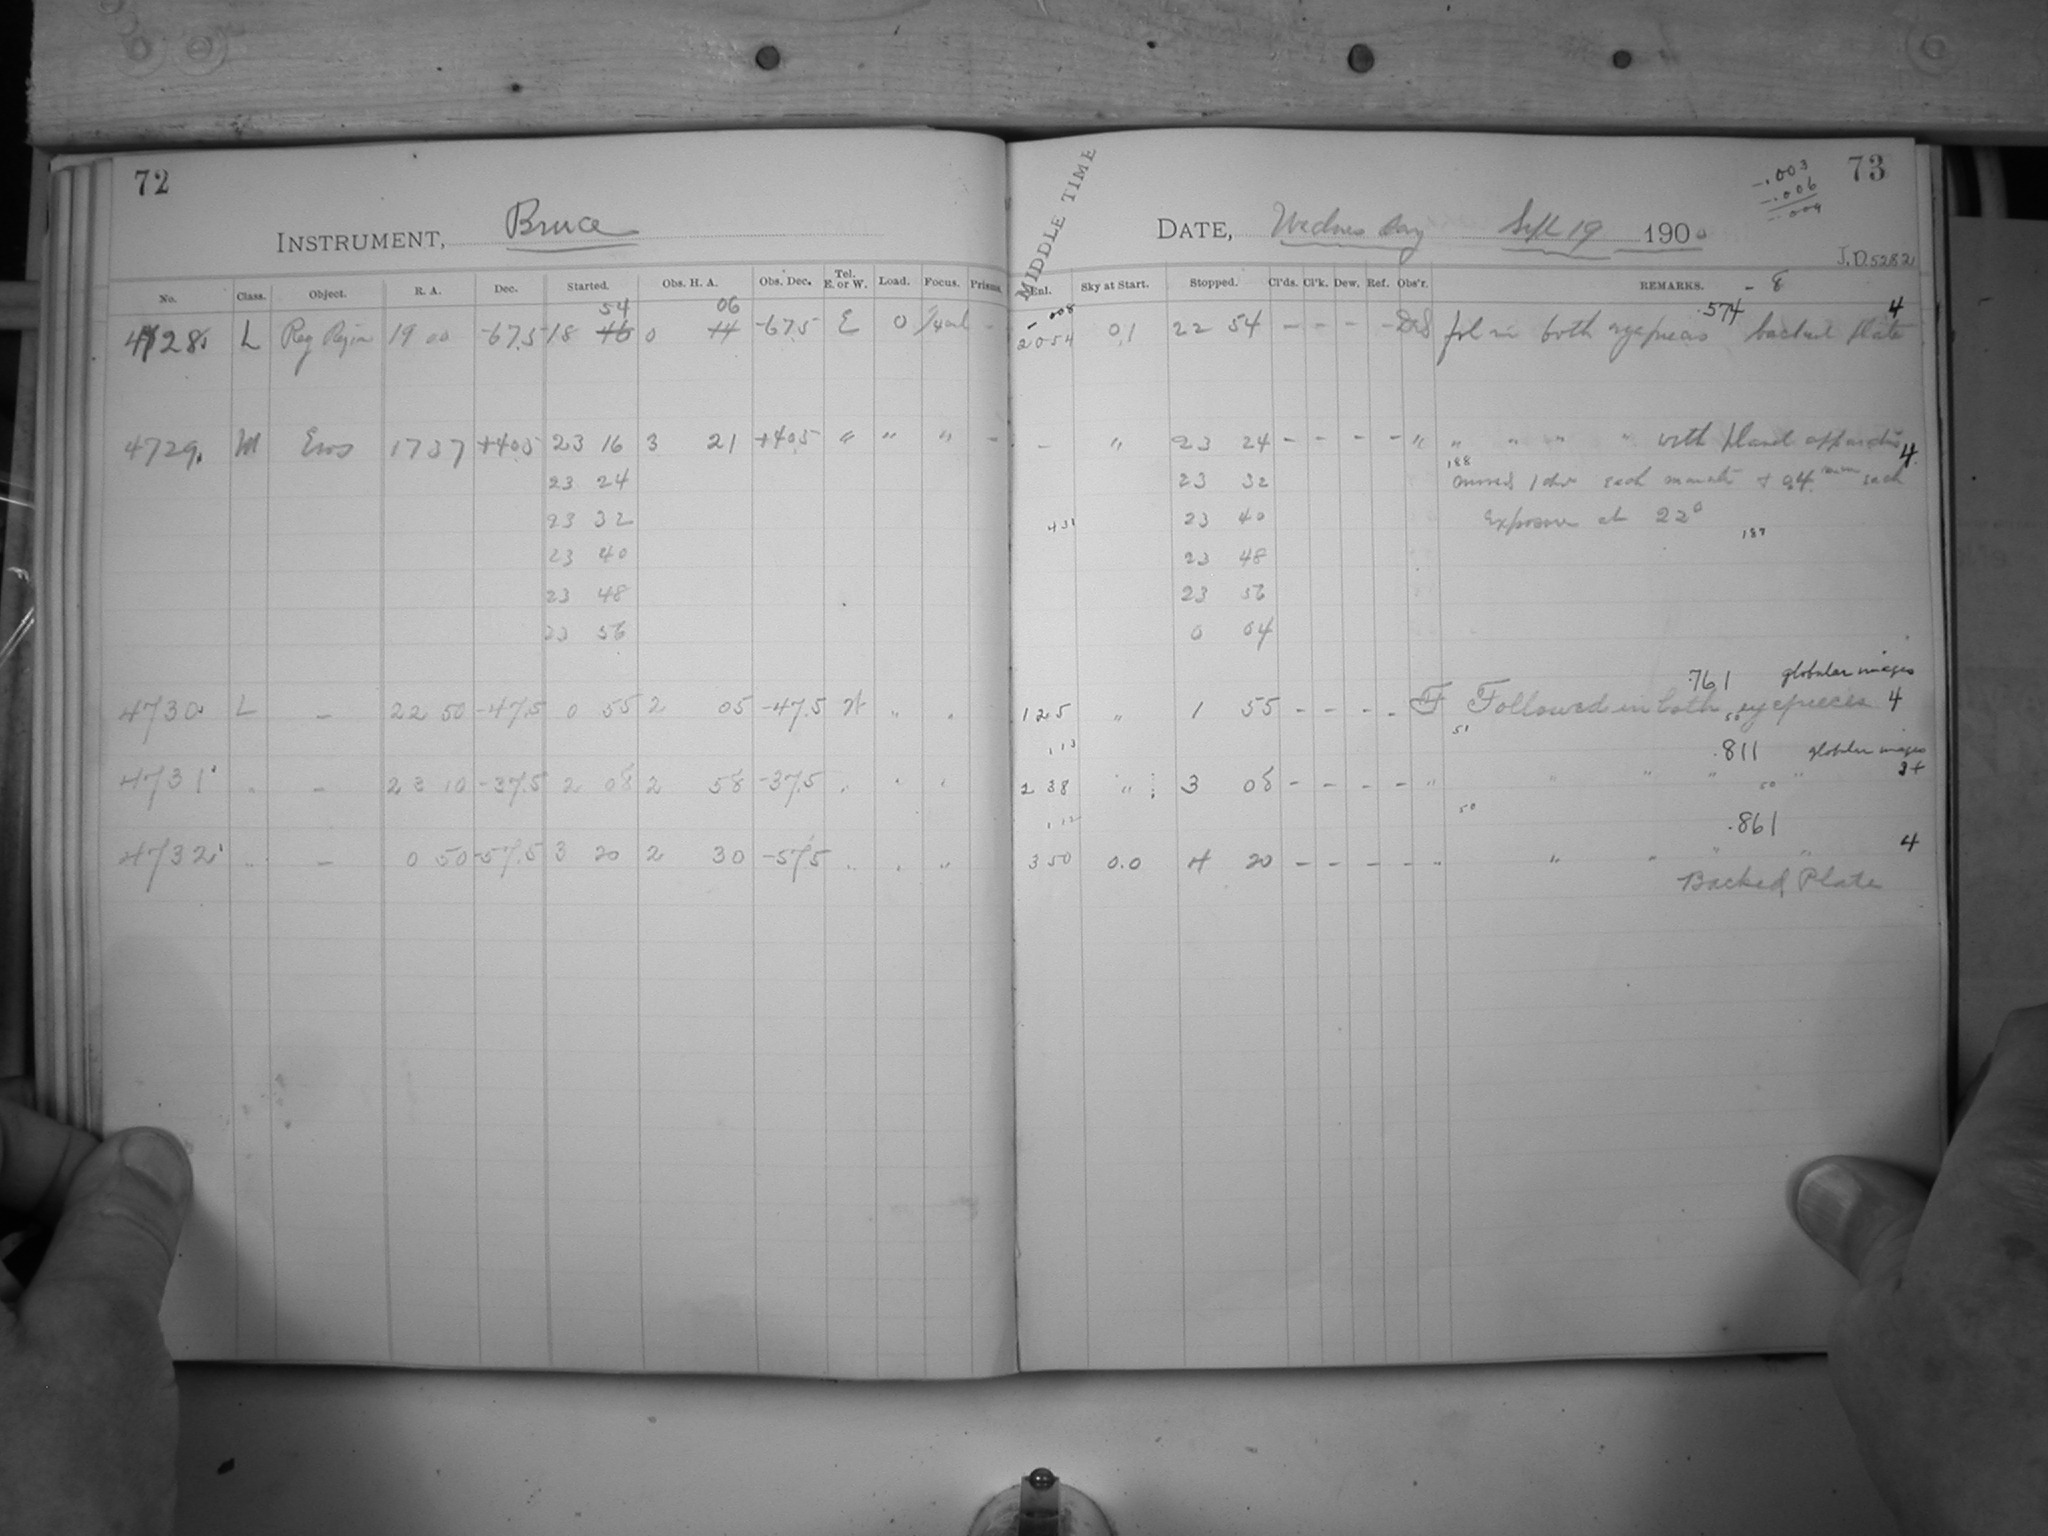 72
INSTRUMENT, Bruce
No. Class. Object. R. A. Dec. Started. Obs. H. A. Obs. Dec. Tel. E. or W. Load. Focus. Prisms.
54 06
4728. L Reg Region 19 00 -67.5 18 46 0 14 -67.5 E 0 -
4729. M Eros 17 37 +40.5 23 16 3 21 +40.5 " " " -
23 24
23 32
23 40
23 48
23 56
4730 L - 22 50 -47.5 0 55 2 05 -47.5 " "
4731 " - 23 10 -37.5 2 08 2 58 -37.5 " " "
4732 " - 0 50 -57.5 3 20 2 30 -57.5 " " "
MIDDLE TIME
73
-.003
-.006
-.009
DATE, Wednesday Sept 19 1900
J.D. 5282
Enl. Sky at Start. Stopped. Cl'ds. Cl'k. Dew. Ref. Obs'r. REMARKS. - 8
-008 .574 4
2054 0.1 22 54 - - - - fol in both eyepieces backed plate
- " 23 24 - - - - " " " " " with planet apparatus 4
188
23 32 moved 1 div each minute + 0.4 mm each
431 23 40 Exposure at 22°
187
23 48
23 56
0 04
.761 globular images
125 " 1 55 - - - - F Followed in both eyepieces 4
51 50
113 .811 globular images
3+
2 38 " 3 08 - - - - " " " " "
50 50
112 .861
4
350 0.0 4 20 - - - - " " " " "
Backed Plate